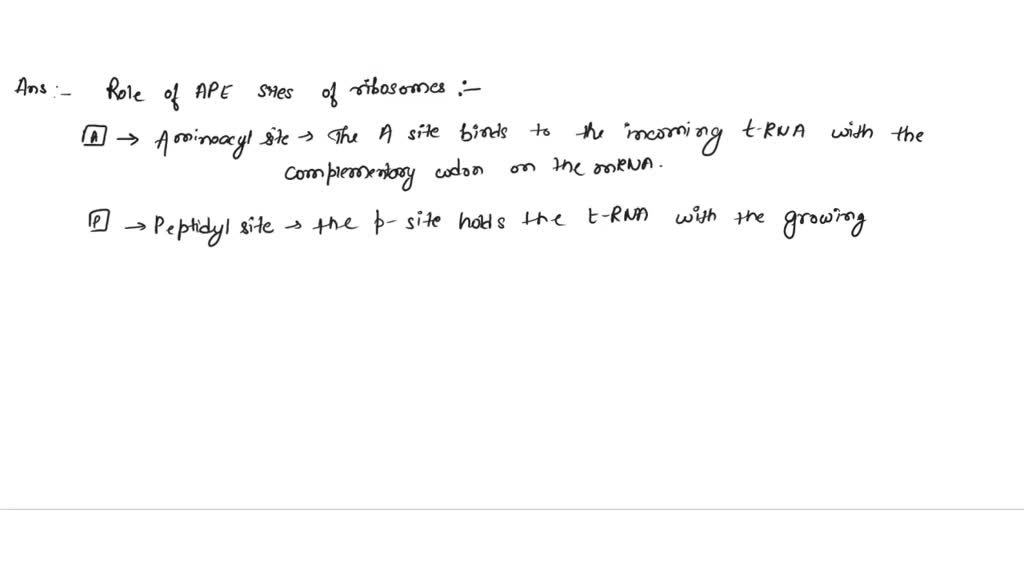 Ans :- Role of APE sites of ribosomes :-
[A] → Aminoacyl site → The A site binds to the incoming t-RNA with the
complementory codon on the mRNA.
[P] → Peptidyl site → the p-site holds the t-RNA with the growing